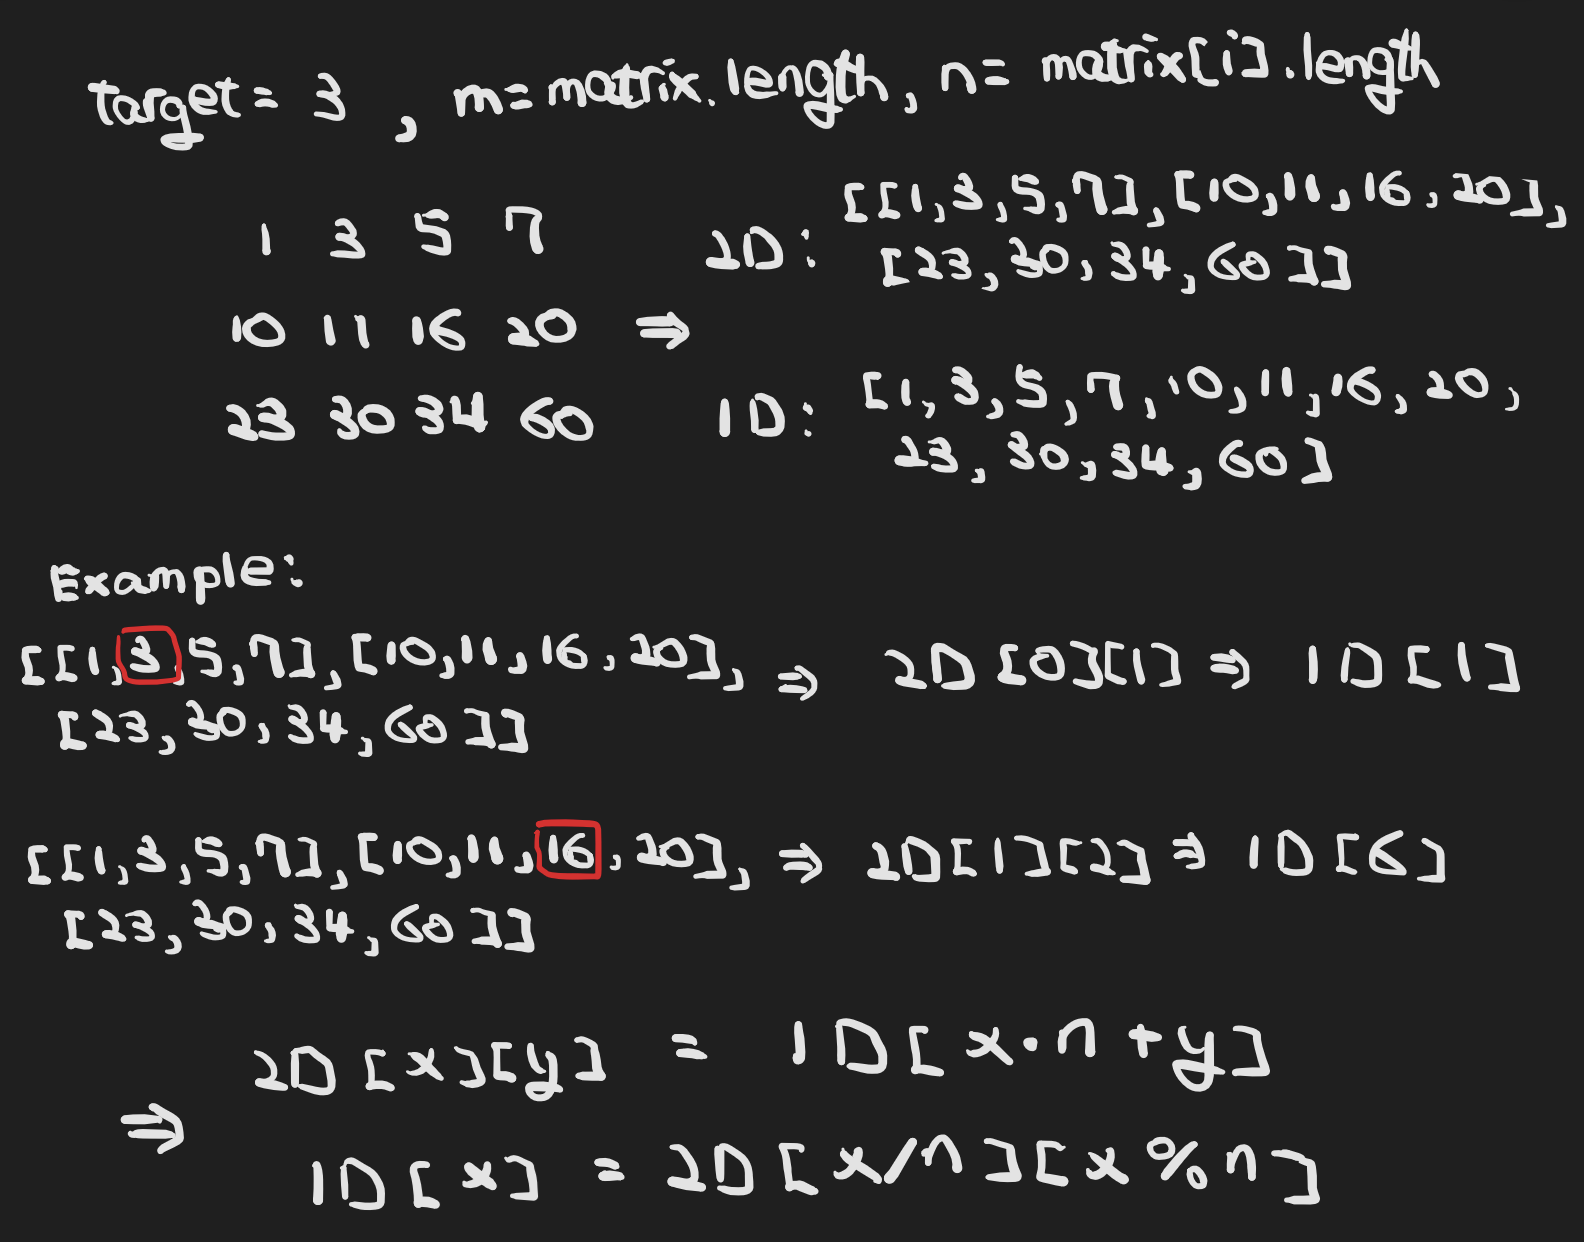 target = 3 , m = matrix.length, n = matrix[i].length
1 3 5 7
10 11 16 20
23 30 34 60
⇒
2D: [[1,3,5,7],[10,11,16,20],
[23,30,34,60]]
1D: [1,3,5,7,10,11,16,20,
23,30,34,60]
Example:
[[1,3,5,7],[10,11,16,20], ⇒ 2D[0][1] ⇒ 1D[1]
[23,30,34,60]]
[[1,3,5,7],[10,11,16,20], ⇒ 2D[1][2] ⇒ 1D[6]
[23,30,34,60]]
⇒
2D[x][y] = 1D[x·n+y]
1D[x] = 2D[x/n][x%n]